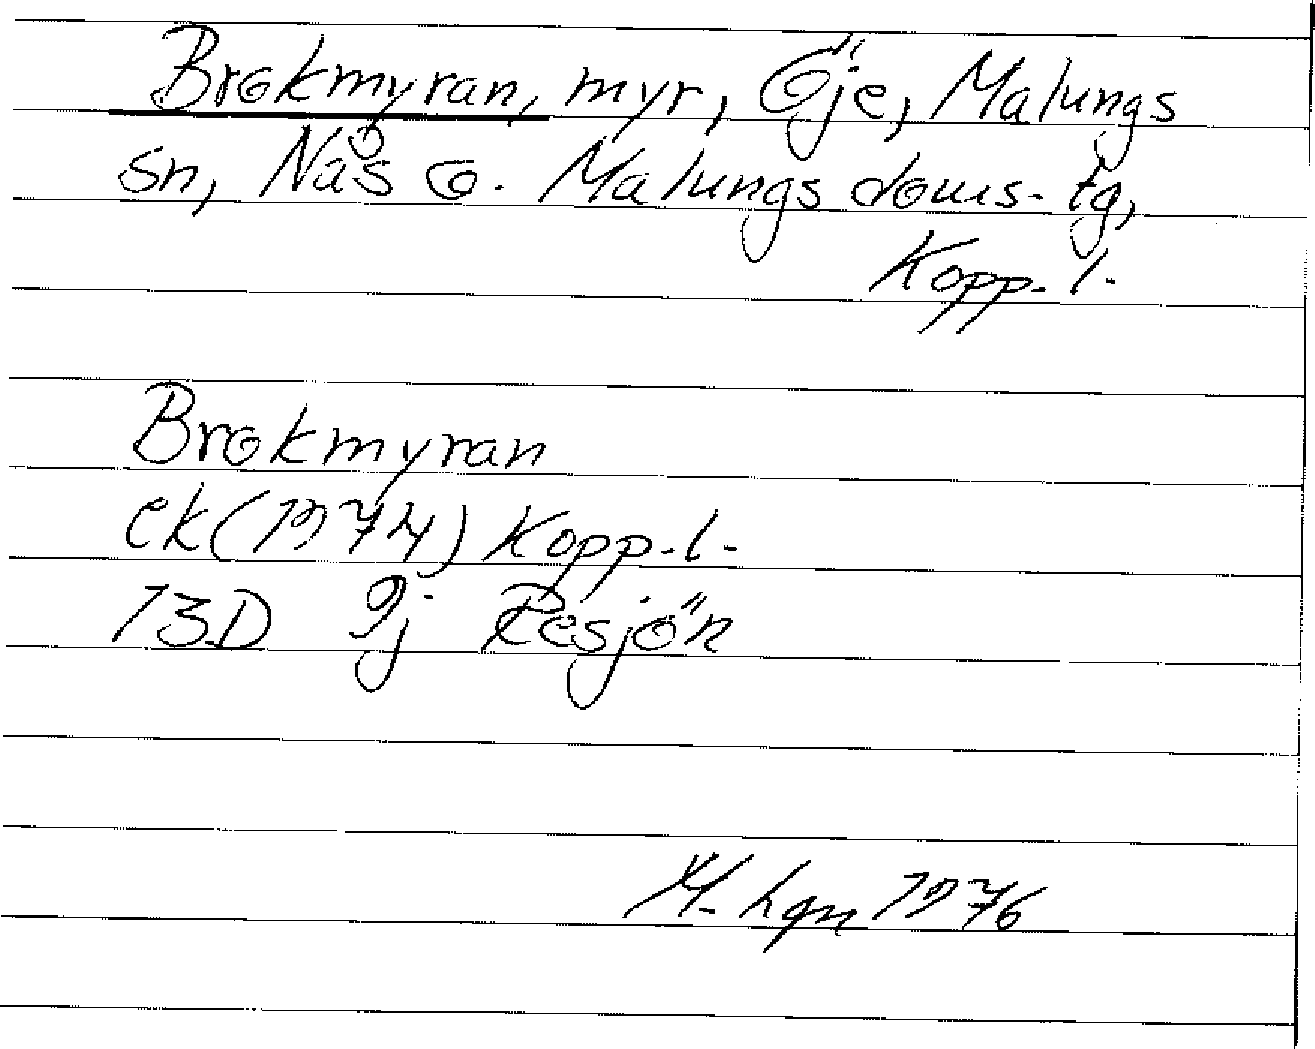 Brokmyran, myr, Öje, Malungs
sn, Nås o. Malungs doms. tg,
Kopp. l.
Brokmyran
ek (1974) Kopp. l.
13D 9j Resjön
1976